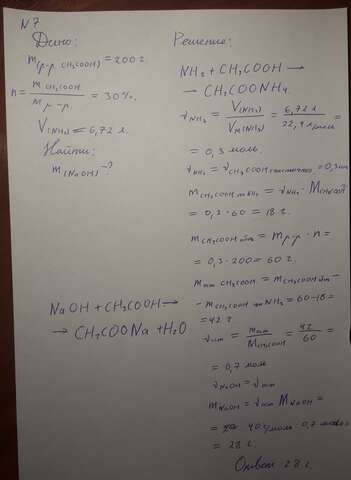 N7
Дано:
m(р-р CH₃COOH) = 200 г.
n = m CH₃COOH / m р-р = 30%.
V(NH₃) = 6,72 л.
Найти:
m(NaOH) -?
NaOH + CH₃COOH →
→ CH₃COONa + H₂O
Решение:
NH₃ + CH₃COOH →
→ CH₃COONH₄.
ν NH₃ = V(NH₃) / Vм(NH₃) = 6,72 л / 22,4 л/моль =
= 0,3 моль.
ν NH₃ = ν CH₃COOH = 0,3
m CH₃COOH NH₃ = ν NH₃ · M CH₃COOH
= 0,3 · 60 = 18 г.
m CH₃COOH общ = m р-р · n =
= 0,3 · 200 = 60 г.
m CH₃COOH = m CH₃COOH общ -
- m CH₃COOH NH₃ = 60-18 =
= 42 г
ν = m / M CH₃COOH = 42 / 60 =
= 0,7 моль
ν NaOH = ν
m NaOH = ν M NaOH =
= 40 г/моль · 0,7 моль
= 28 г.
Ответ 28 г.